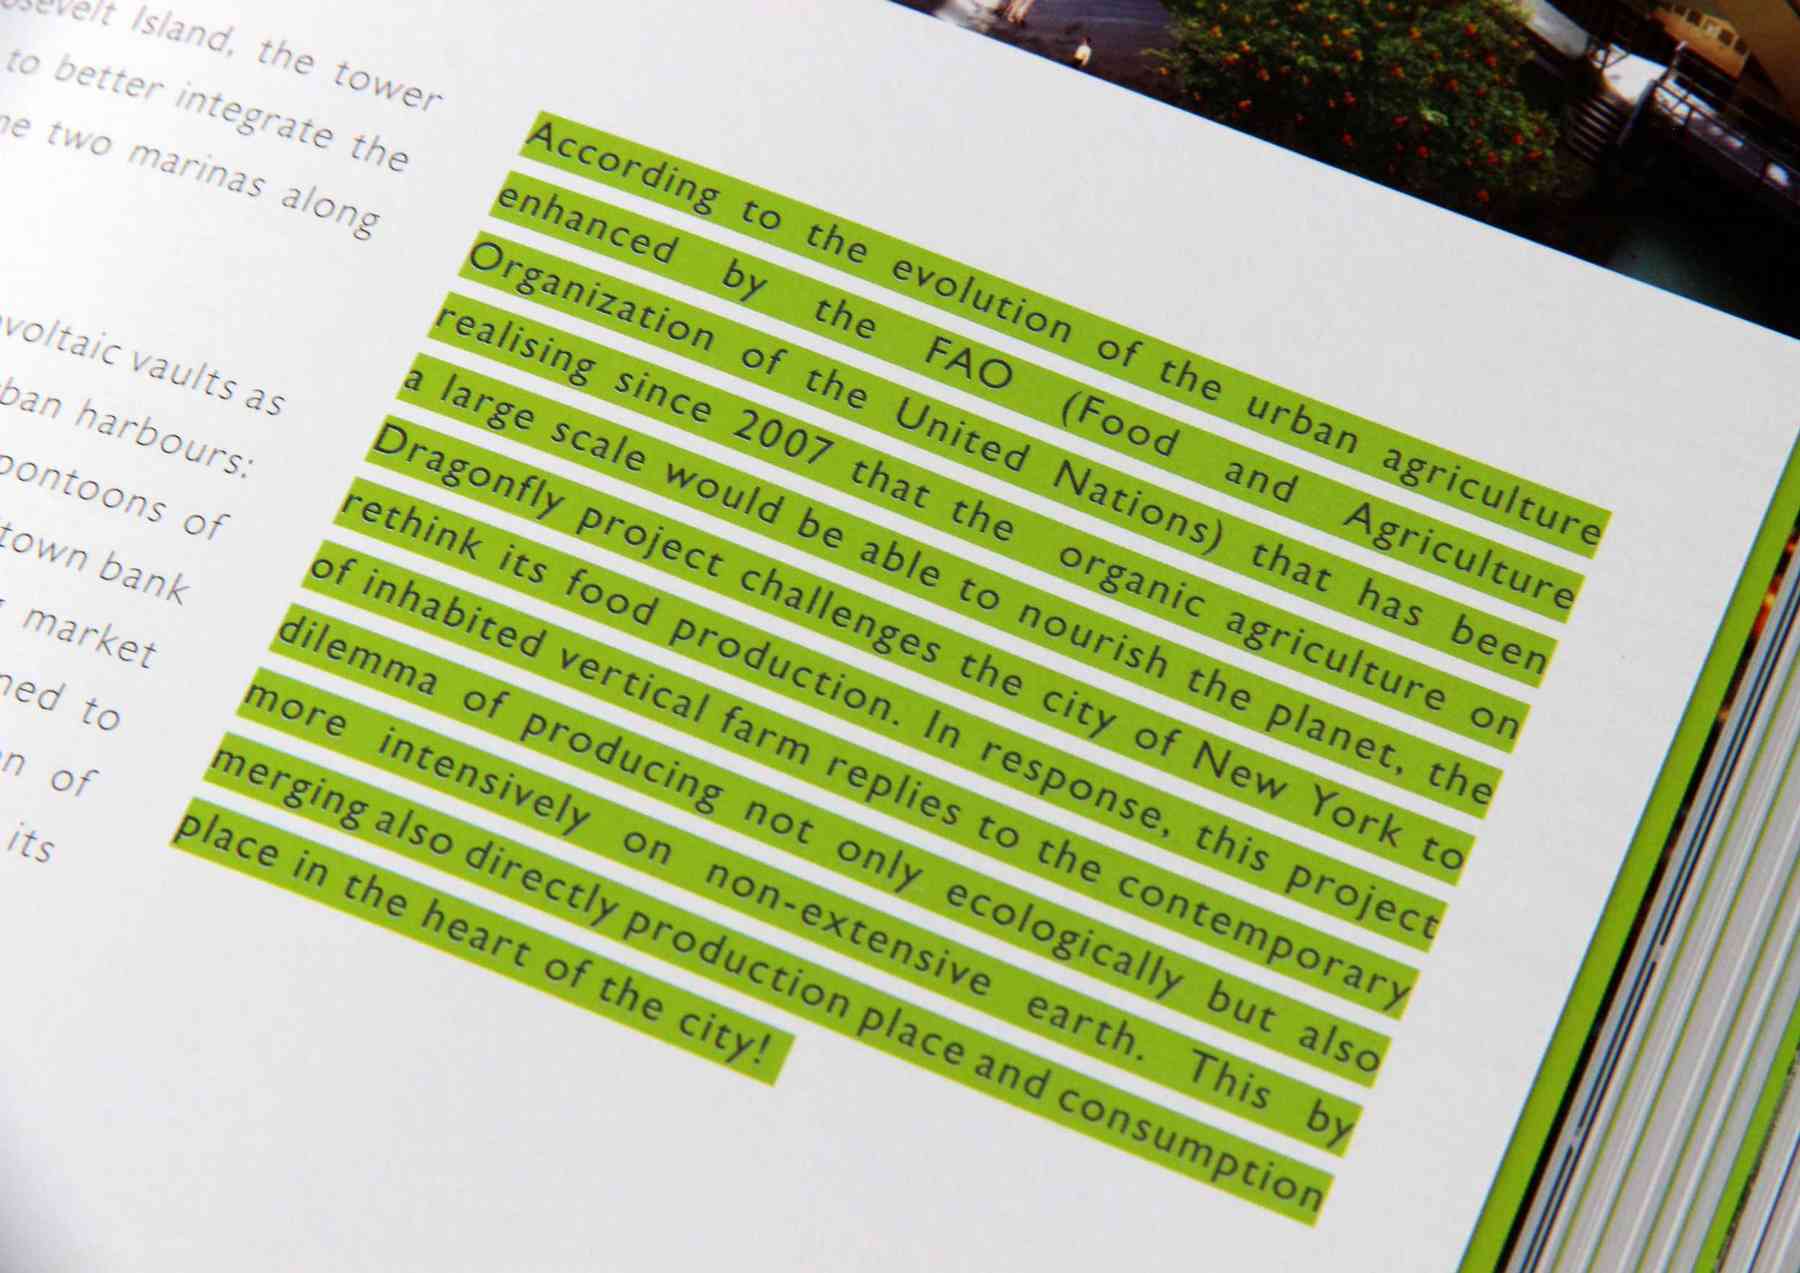 Island, the tower
to better integrate the
two marinas along
vaults as
harbours:
pontoons of
town bank
market
to
of
its
According to the evolution of the urban agriculture
enhanced by the FAO (Food and Agriculture
Organization of the United Nations) that has been
realising since 2007 that the organic agriculture on
a large scale would be able to nourish the planet, the
Dragonfly project challenges the city of New York to
rethink its food production. In response, this project
of inhabited vertical farm replies to the contemporary
dilemma of producing not only ecologically but also
more intensively on non-extensive earth. This by
merging also directly production place and consumption
place in the heart of the city!